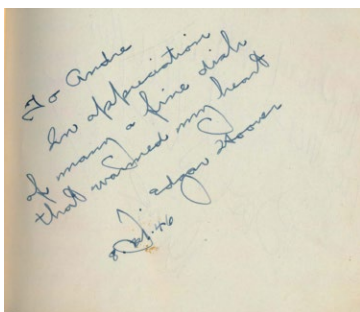 To Andre
In appreciation
of many a fine dish
that warmed my heart
J. Edgar Hoover